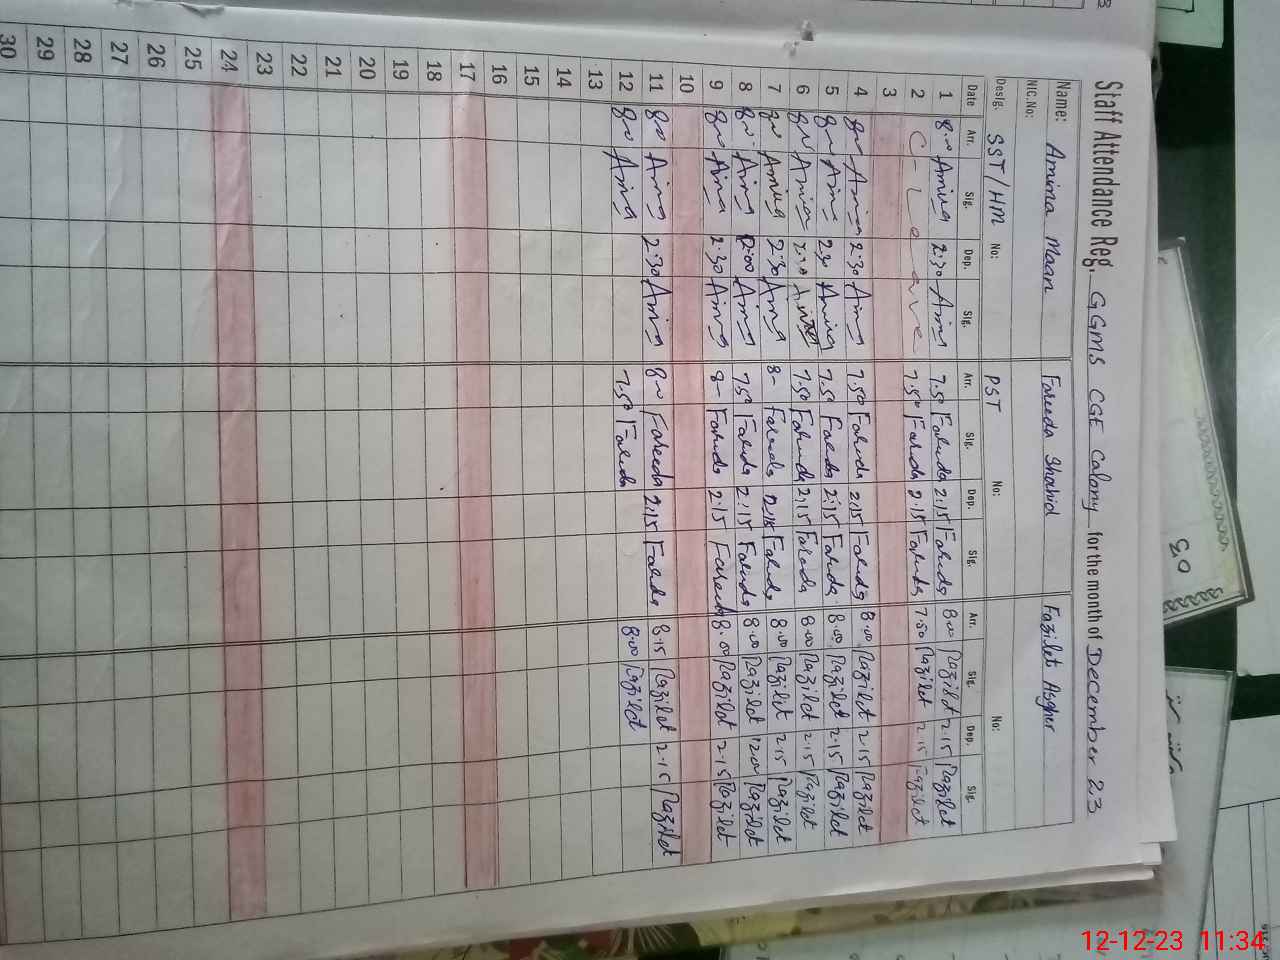 Staff Attendance Reg. GGMS CGE Calony for the month of December 23
Name: Amina Maan Fareeda Shahid Fazilet Asghar
NIC.No:
Desig. SST/HM No: PST No: No:
Date Arr. Sig. Dep. Sig. Arr. Sig. Dep. Sig. Arr. Sig. Dep. Sig.
1 8.00 Amina 2.30 Amina 7.50 Fareeda 2.15 Fareeda 8.00 Fazilet 2.15 Fazilet
2 C-Leave 7.50 Fareeda 2.15 Fareeda 7.50 Fazilet 2.15 Fazilet
3
4 8.00 Amina 2.30 Amina 7.50 Fareeda 2.15 Fareeda 8.00 Fazilet 2.15 Fazilet
5 8.00 Amina 2.30 Amina 7.50 Fareeda 2.15 Fareeda 8.00 Fazilet 2.15 Fazilet
6 8.00 Amina 2.30 Amina 7.50 Fareeda 2.15 Fareeda 8.00 Fazilet 2.15 Fazilet
7 8.00 Amina 2.30 Amina 8- Fareeda 12.15 Fareeda 8.00 Fazilet 2.15 Fazilet
8 8.00 Amina 12:00 Amina 7.50 Fareeda 2.15 Fareeda 8.00 Fazilet 12.00 Fazilet
9 8.00 Amina 2.30 Amina 8- Fareeda 2.15 Fareeda 8.00 Fazilet 2.15 Fazilet
10
11 8.00 Amina 2.30 Amina 8.00 Fareeda 2.15 Fareeda 8.15 Fazilet 2.15 Fazilet
12 8.00 Amina 7.50 Fareeda 8.00 Fazilet
13
14
15
16
17
18
19
20
21
22
23
24
25
26
27
28
29
30
12-12-23 11:34